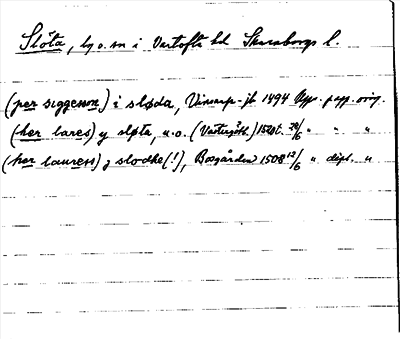 Slöta, by o. sn i Vartofta hd Skaraborgs l.
(per siggesson) i sløda, Vinsarp-jb 1494 Upps. papp. orig.
(her lares) y sløta, u.o. (Västergötl.) 1520t. 24/6 " " "
(her lauress) y slodhe (!), Bosgården 1508 12/6 " dipl. "